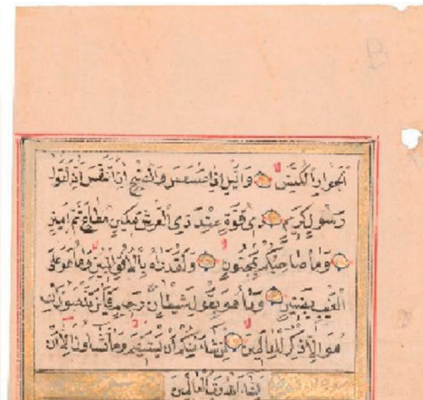 الْجَوَارِ الْكُنَّسِ وَالَّيْلِ اِذَا عَسْعَسَ وَالصُّبْحِ اِذَا تَنَفَّسَ اِنَّهُ لَقَوْلُ
رَسُولٍ كَرِيمٍ ذِى قُوَّةٍ عِنْدَ ذِى الْعَرْشِ مَكِينٍ مُطَاعٍ ثَمَّ اَمِينٍ
وَمَا صَاحِبُكُمْ بِمَجْنُونٍ وَلَقَدْ رَاٰهُ بِالْاُفُقِ الْمُبِينِ وَمَا هُوَ عَلَى
الْغَيْبِ بِضَنِينٍ وَمَا هُوَ بِقَوْلِ شَيْطَانٍ رَجِيمٍ فَاَيْنَ تَذْهَبُونَ اِنْ
هُوَ اِلَّا ذِكْرٌ لِلْعَالَمِينَ لِمَنْ شَاءَ مِنْكُمْ اَنْ يَسْتَقِيمَ وَمَا تَشَاؤُنَ اِلَّا اَنْ
يَشَاءَ اللّٰهُ رَبُّ الْعَالَمِينَ